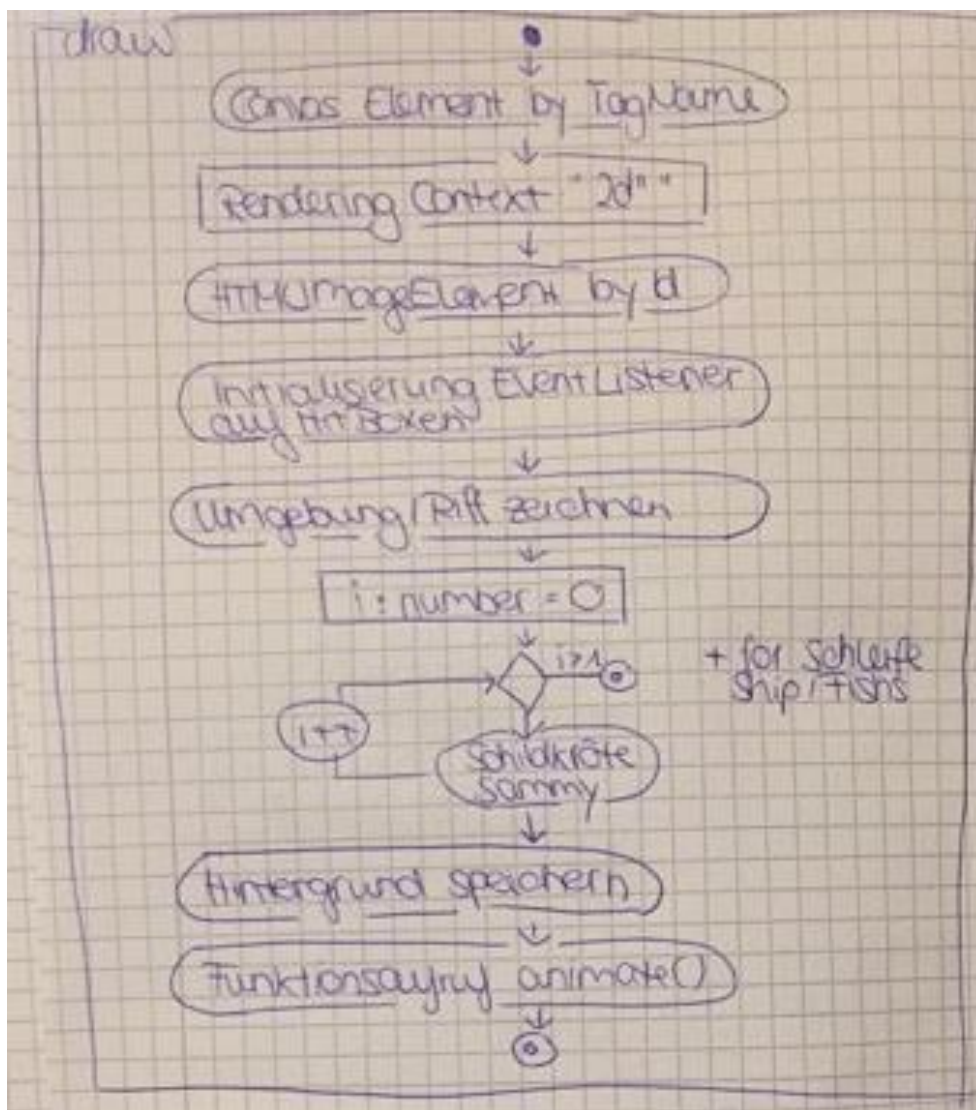 draw
Canvas Element by TagName
Rendering Context "2d"
HTMLImageElement by Id
Initialisierung EventListener
auf Hit Boxen
Umgebung/Riff zeichnen
i: number = 0
i>1
+ for Schleife
Ship/Fishs
i++
Schildkröte
Sammy
Hintergrund speichern
Funktionsaufruf animate()